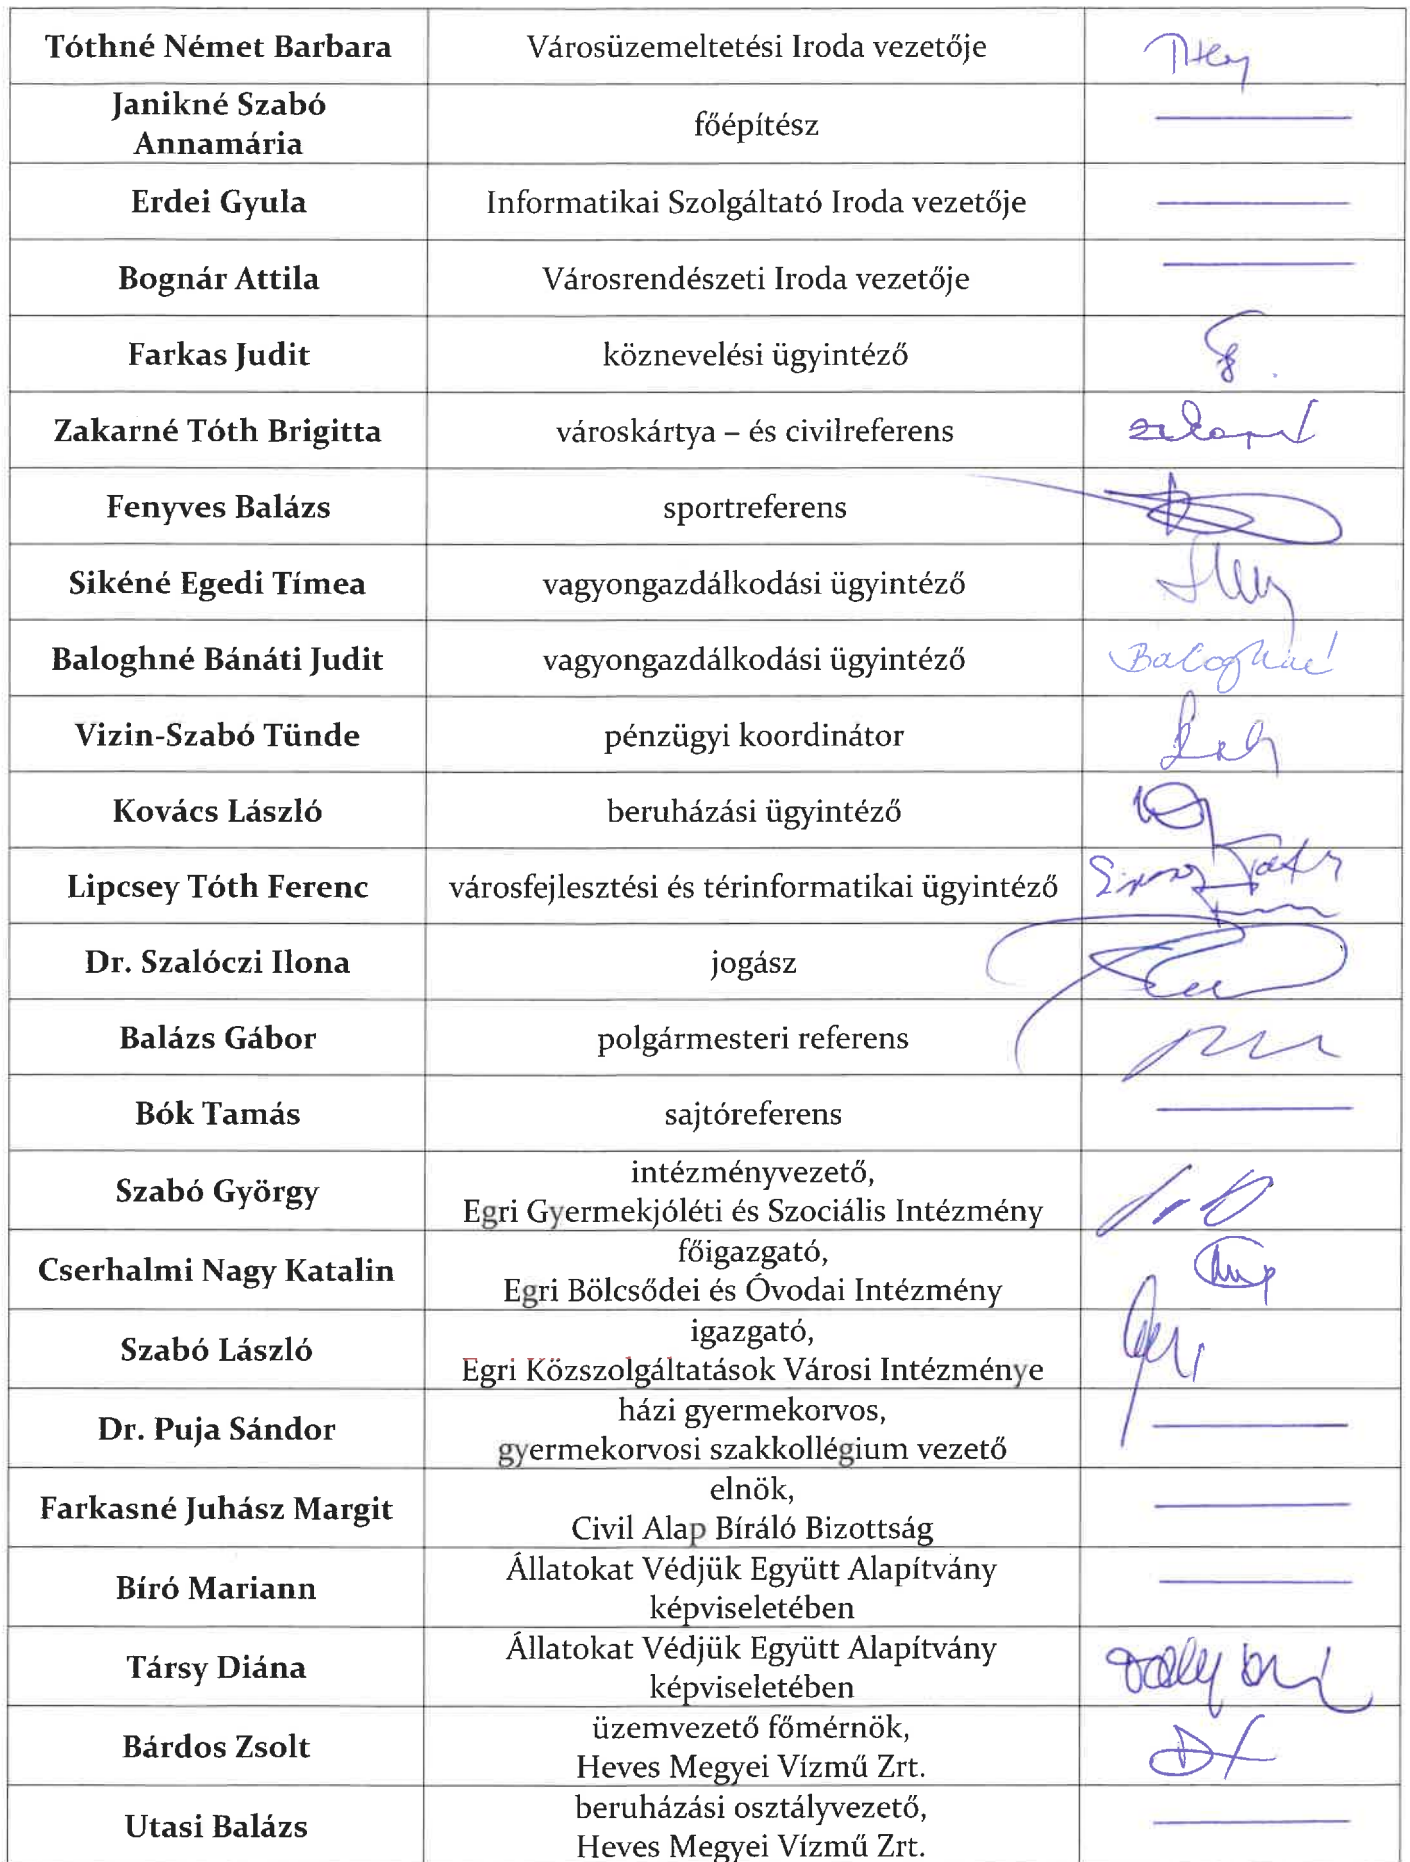 Tóthné Német Barbara
Városüzemeltetési Iroda vezetője
Janikné Szabó
Annamária
főépítész
Erdei Gyula
Informatikai Szolgáltató Iroda vezetője
Bognár Attila
Városrendészeti Iroda vezetője
Farkas Judit
köznevelési ügyintéző
Zakarné Tóth Brigitta
városkártya – és civilreferens
Fenyves Balázs
sportreferens
Sikéné Egedi Tímea
vagyongazdálkodási ügyintéző
Baloghné Bánáti Judit
vagyongazdálkodási ügyintéző
Baloghné
Vizin-Szabó Tünde
pénzügyi koordinátor
Kovács László
beruházási ügyintéző
Lipcsey Tóth Ferenc
városfejlesztési és térinformatikai ügyintéző
Dr. Szalóczi Ilona
jogász
Balázs Gábor
polgármesteri referens
Bók Tamás
sajtóreferens
Szabó György
intézményvezető,
Egri Gyermekjóléti és Szociális Intézmény
Cserhalmi Nagy Katalin
főigazgató,
Egri Bölcsődei és Óvodai Intézmény
Szabó László
igazgató,
Egri Közszolgáltatások Városi Intézménye
Dr. Puja Sándor
házi gyermekorvos,
gyermekorvosi szakkollégium vezető
Farkasné Juhász Margit
elnök,
Civil Alap Bíráló Bizottság
Bíró Mariann
Állatokat Védjük Együtt Alapítvány
képviseletében
Társy Diána
Állatokat Védjük Együtt Alapítvány
képviseletében
Bárdos Zsolt
üzemvezető főmérnök,
Heves Megyei Vízmű Zrt.
Utasi Balázs
beruházási osztályvezető,
Heves Megyei Vízmű Zrt.